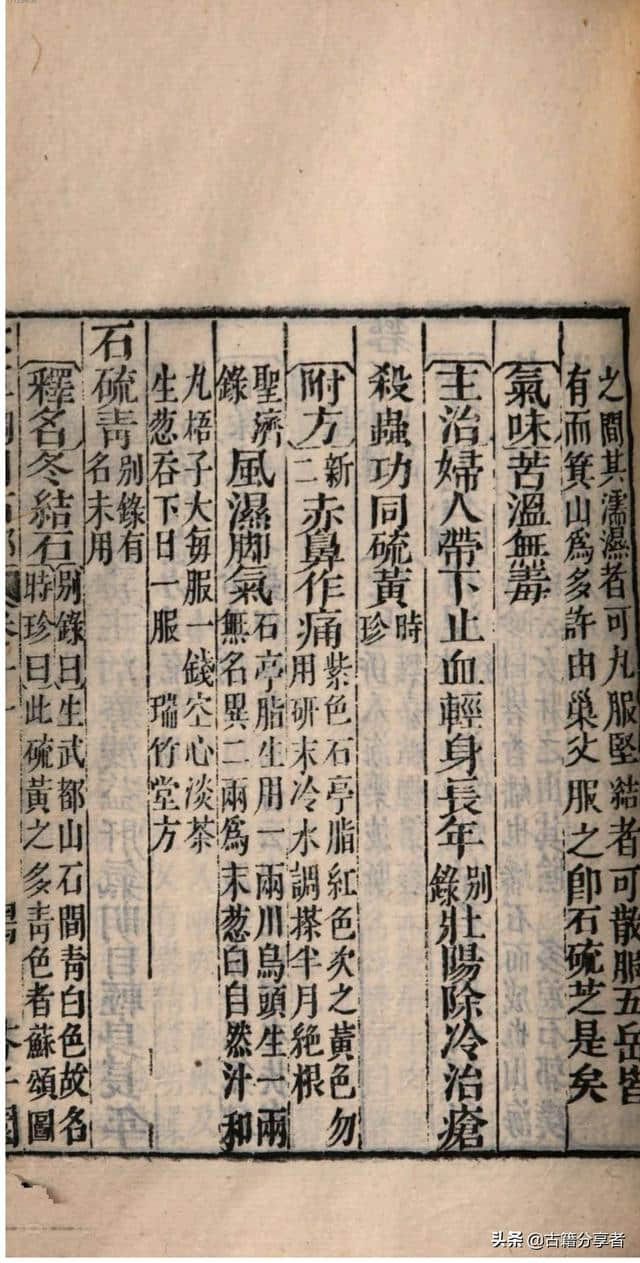 之間其濡濕者可丸服堅結者可散服五岳皆
有而箕山為多許由巢父服之即石硫芝是矣
氣味苦溫無毒
主治婦人帶下止血輕身長年別錄壯陽除冷治瘡
殺蟲功同硫黃時珍
附方新二赤鼻作痛紫色石亭脂紅色次之黃色勿用研末冷水調搽半月絶根
聖濟錄風濕脚氣石亭脂生用一兩川烏頭生一兩無名異二兩為末葱白自然汁和
丸梧子大每服一錢空心淡茶
生葱吞下日一服 瑞竹堂方
石硫青別錄有名未用
釋名冬結石別錄曰生武都山石間青白色故名時珍曰此硫黃之多青色者蘇頌圖
头条 @古籍分享者